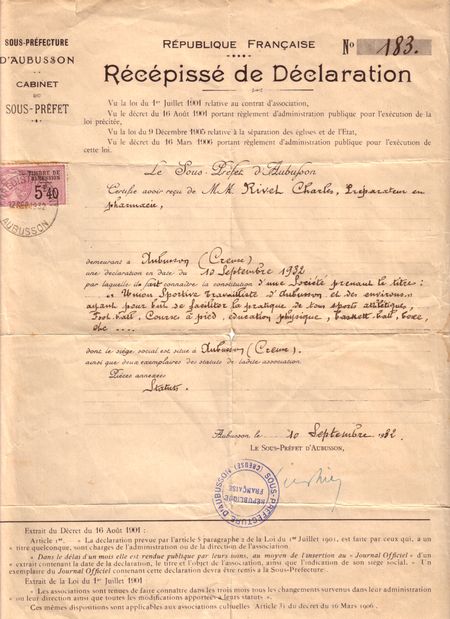 SOUS-PRÉFECTURE
D'AUBUSSON
CABINET
DU
SOUS-PRÉFET
RÉPUBLIQUE FRANÇAISE
No 183.
Récépissé de Déclaration
Vu la loi du 1er Juillet 1901 relative au contrat d'association,
Vu le décret du 16 Août 1901 portant règlement d'administration publique pour l'exécution de la
loi précitée,
Vu la loi du 9 Décembre 1905 relative à la séparation des églises et de l'Etat,
Vu le décret du 16 Mars 1906 portant règlement d'administration publique pour l'exécution de
cette loi.
Le Sous-Préfet d'Aubusson
Certifie avoir reçu de M. Rivet Charles, Préparateur en
pharmacie,
TIMBRE DE
DIMENSION
5 f 40
AUBUSSON
demeurant à Aubusson (Creuse)
une déclaration en date du 10 Septembre 1932
par laquelle ils font connaître la constitution d'une Société prenant le titre:
"Union Sportive Travailliste d'Aubusson et des environs"
ayant pour but de faciliter la pratique de tous sports athlétique,
Foot-ball, Course à pied, éducation physique, baskett-ball, boxe,
etc ....
dont le siège social est situé à Aubusson (Creuse).
ainsi que deux exemplaires des statuts de ladite association.
Pièces annexées
Statuts.
Aubusson le 10 Septembre 1932
LE SOUS-PRÉFET D'AUBUSSON,
SOUS-PRÉFECTURE D'AUBUSSON (CREUSE)
RÉPUBLIQUE
FRANÇAISE
Extrait du Décret du 16 Août 1901 :
Article 1er. — La déclaration prévue par l'article 5 paragraphe 2 de la Loi du 1er Juillet 1901, est faite par ceux qui, a
un titre quelconque, sont charges de l'administration ou de la direction de l'association.
« Dans le délai d'un mois elle est rendue publique par leurs soins, au moyen de l'insertion au « Journal Officiel » d'un
extrait contenant la date de la déclaration, le titre et l'objet de l'association, ainsi que l'indication de son siège social. » Un
exemplaire du Journal Officiel contenant cette déclaration devra être remis à la Sous-Préfecture.
Extrait de la Loi du 1er Juillet 1901
« Les associations sont tenues de faire connaître dans les trois mois tous les changements survenus dans leur administration
ou leur direction ainsi que toutes les modifications apportées a leurs statuts ».
Ces mêmes dispositions sont applicables aux associations cultuelles Article 31 du décret du 16 Mars 1906.